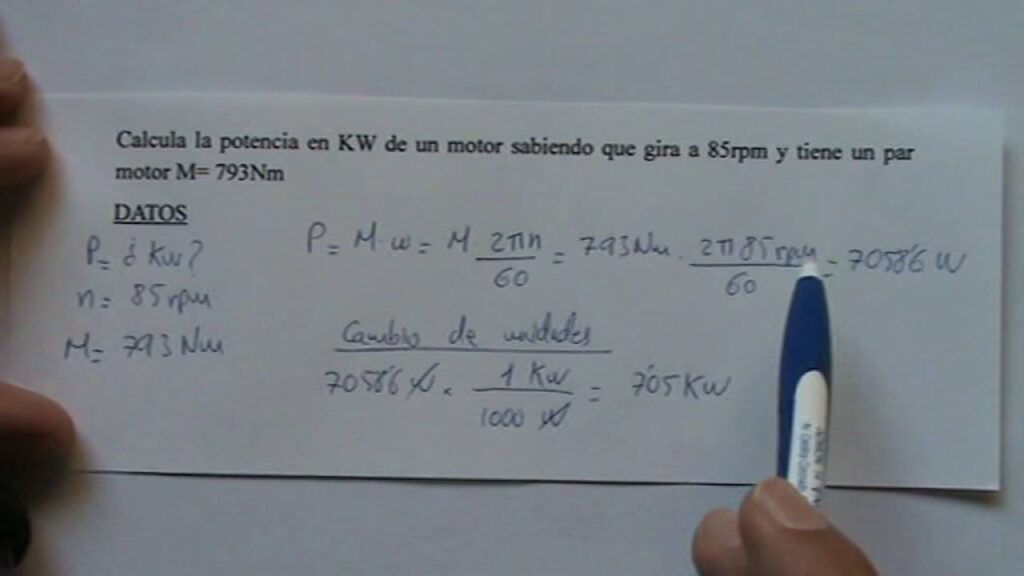 Calcula la potencia en KW de un motor sabiendo que gira a 85rpm y tiene un par
motor M= 793Nm
DATOS
P= ¿ Kw?
n= 85rpm
M= 793 Nm
P= M w = M 2πn/60 = 793Nm . 2π 85 rpm/60 = 7058'6 W
Cambio de unidades
7058'6 W . 1 Kw/1000 W = 7'05 KW